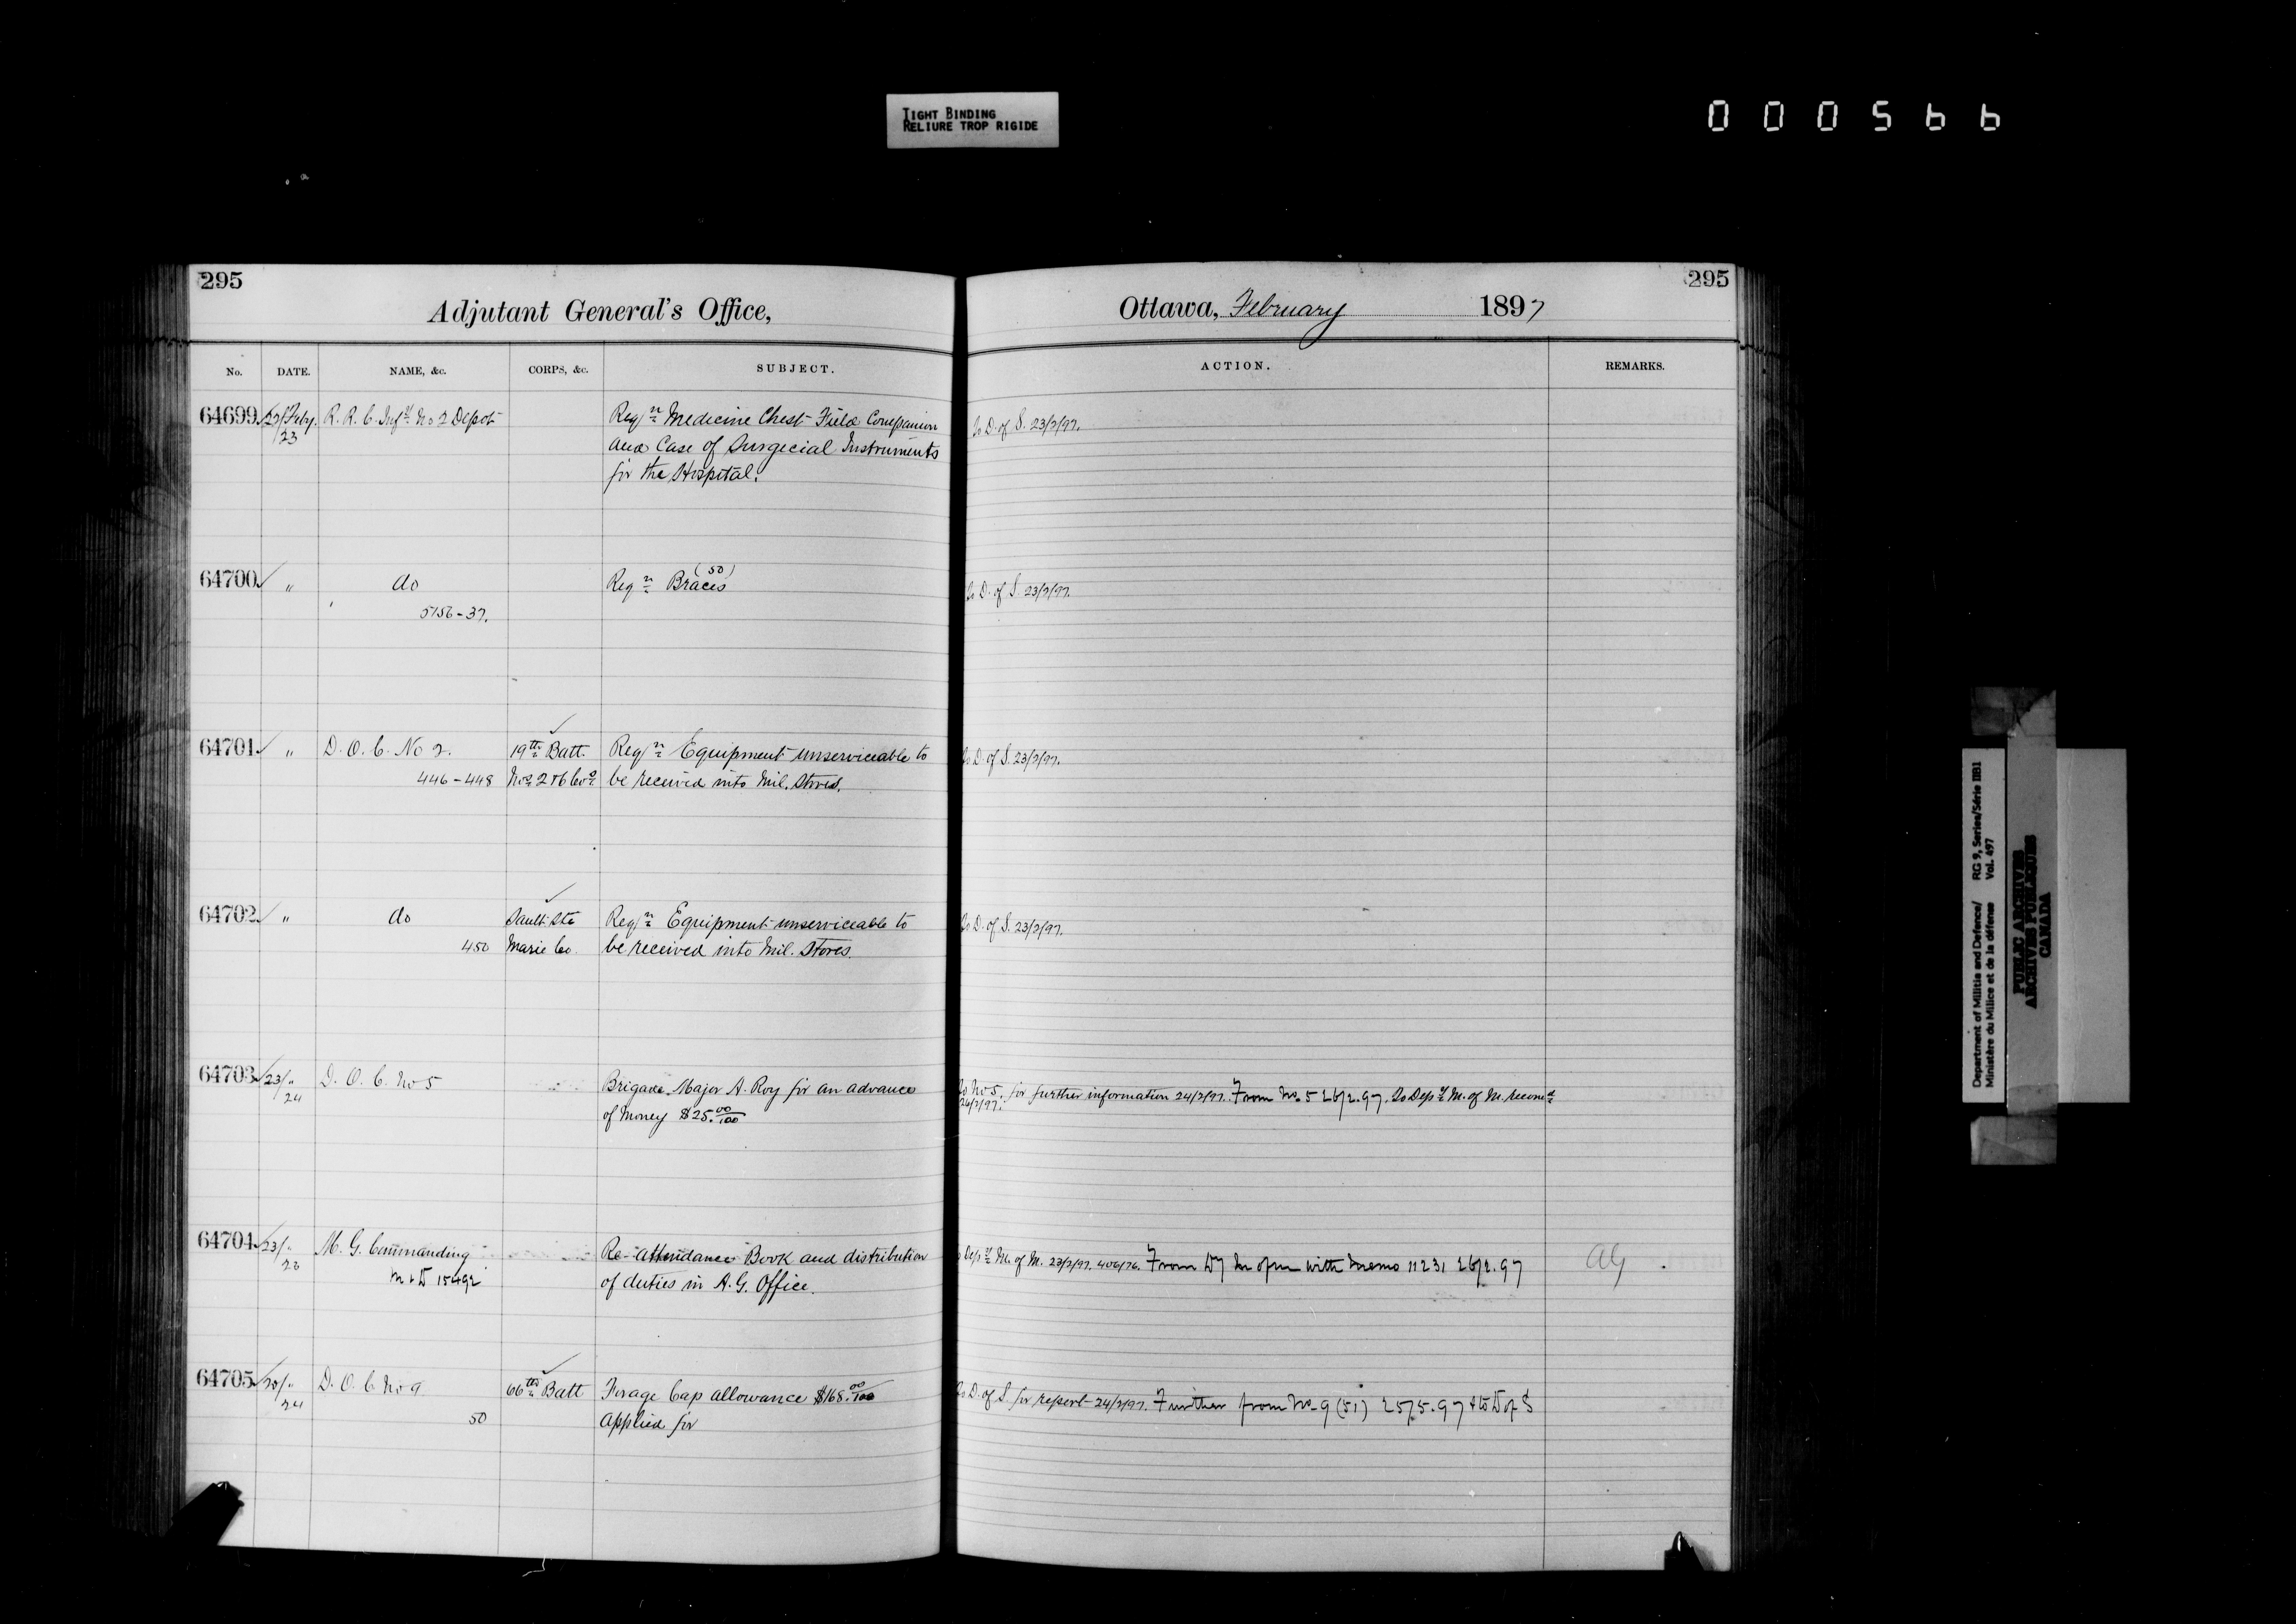 TIGHT BINDING
RELIURE TROP RIGIDE
000566
295
Adjutant General's Office,
No. DATE. NAME, &c. CORPS, &c. SUBJECT.
64699 23/Feby. R. R. C. Infy No 2 Depot Reqn Medicine Chest Field Companion
23 and Case of Surgecial Instruments
for the Hospital.
64700 " do Reqn Braces (50)
5156-37.
64701 " D. O. C. No 2. 19th Batt. Reqn Equipment unserviceable to
446-448 Nos 2 & 6 Cos be received into Mil. Stores.
64702 " do Sault Ste Reqn Equipment unserviceable to
450 Marie Co. be received into Mil. Stores.
64703 23/" D. O. C. No 5 Brigade Major A. Roy for an advance
24 of Money $25.00/100
64704 23/" M. G. Commanding Re-attendance Book and distribution
23 M & D 15492 of duties in A. G. Office.
64705 20/" D. O. C. No 9 66th Batt Forage Cap allowance $168.00/100
24 50 applied for
295
Ottawa, February 1897
ACTION. REMARKS.
To D. of S. 23/2/97.
To D. of S. 23/2/97.
To D. of S. 23/2/97.
To D. of S. 23/2/97.
To No 5. for further information 24/2/97. From No. 5 26/2.97. To Depy M. of M. recomd
26/2/97.
Depy M. of M. 23/2/97. 406/76. From Dy M of M with Memo 11231 26/2.97 AG
To D. of S for report 24/2/97. Further from No. 9 (51) 25/5.97 & to D of S
Department of Militia and Defence/ RG 9, Series/Série IIB1
Ministère du Milice et de la défense Vol. 497
PUBLIC ARCHIVES
ARCHIVES PUBLIQUES
CANADA